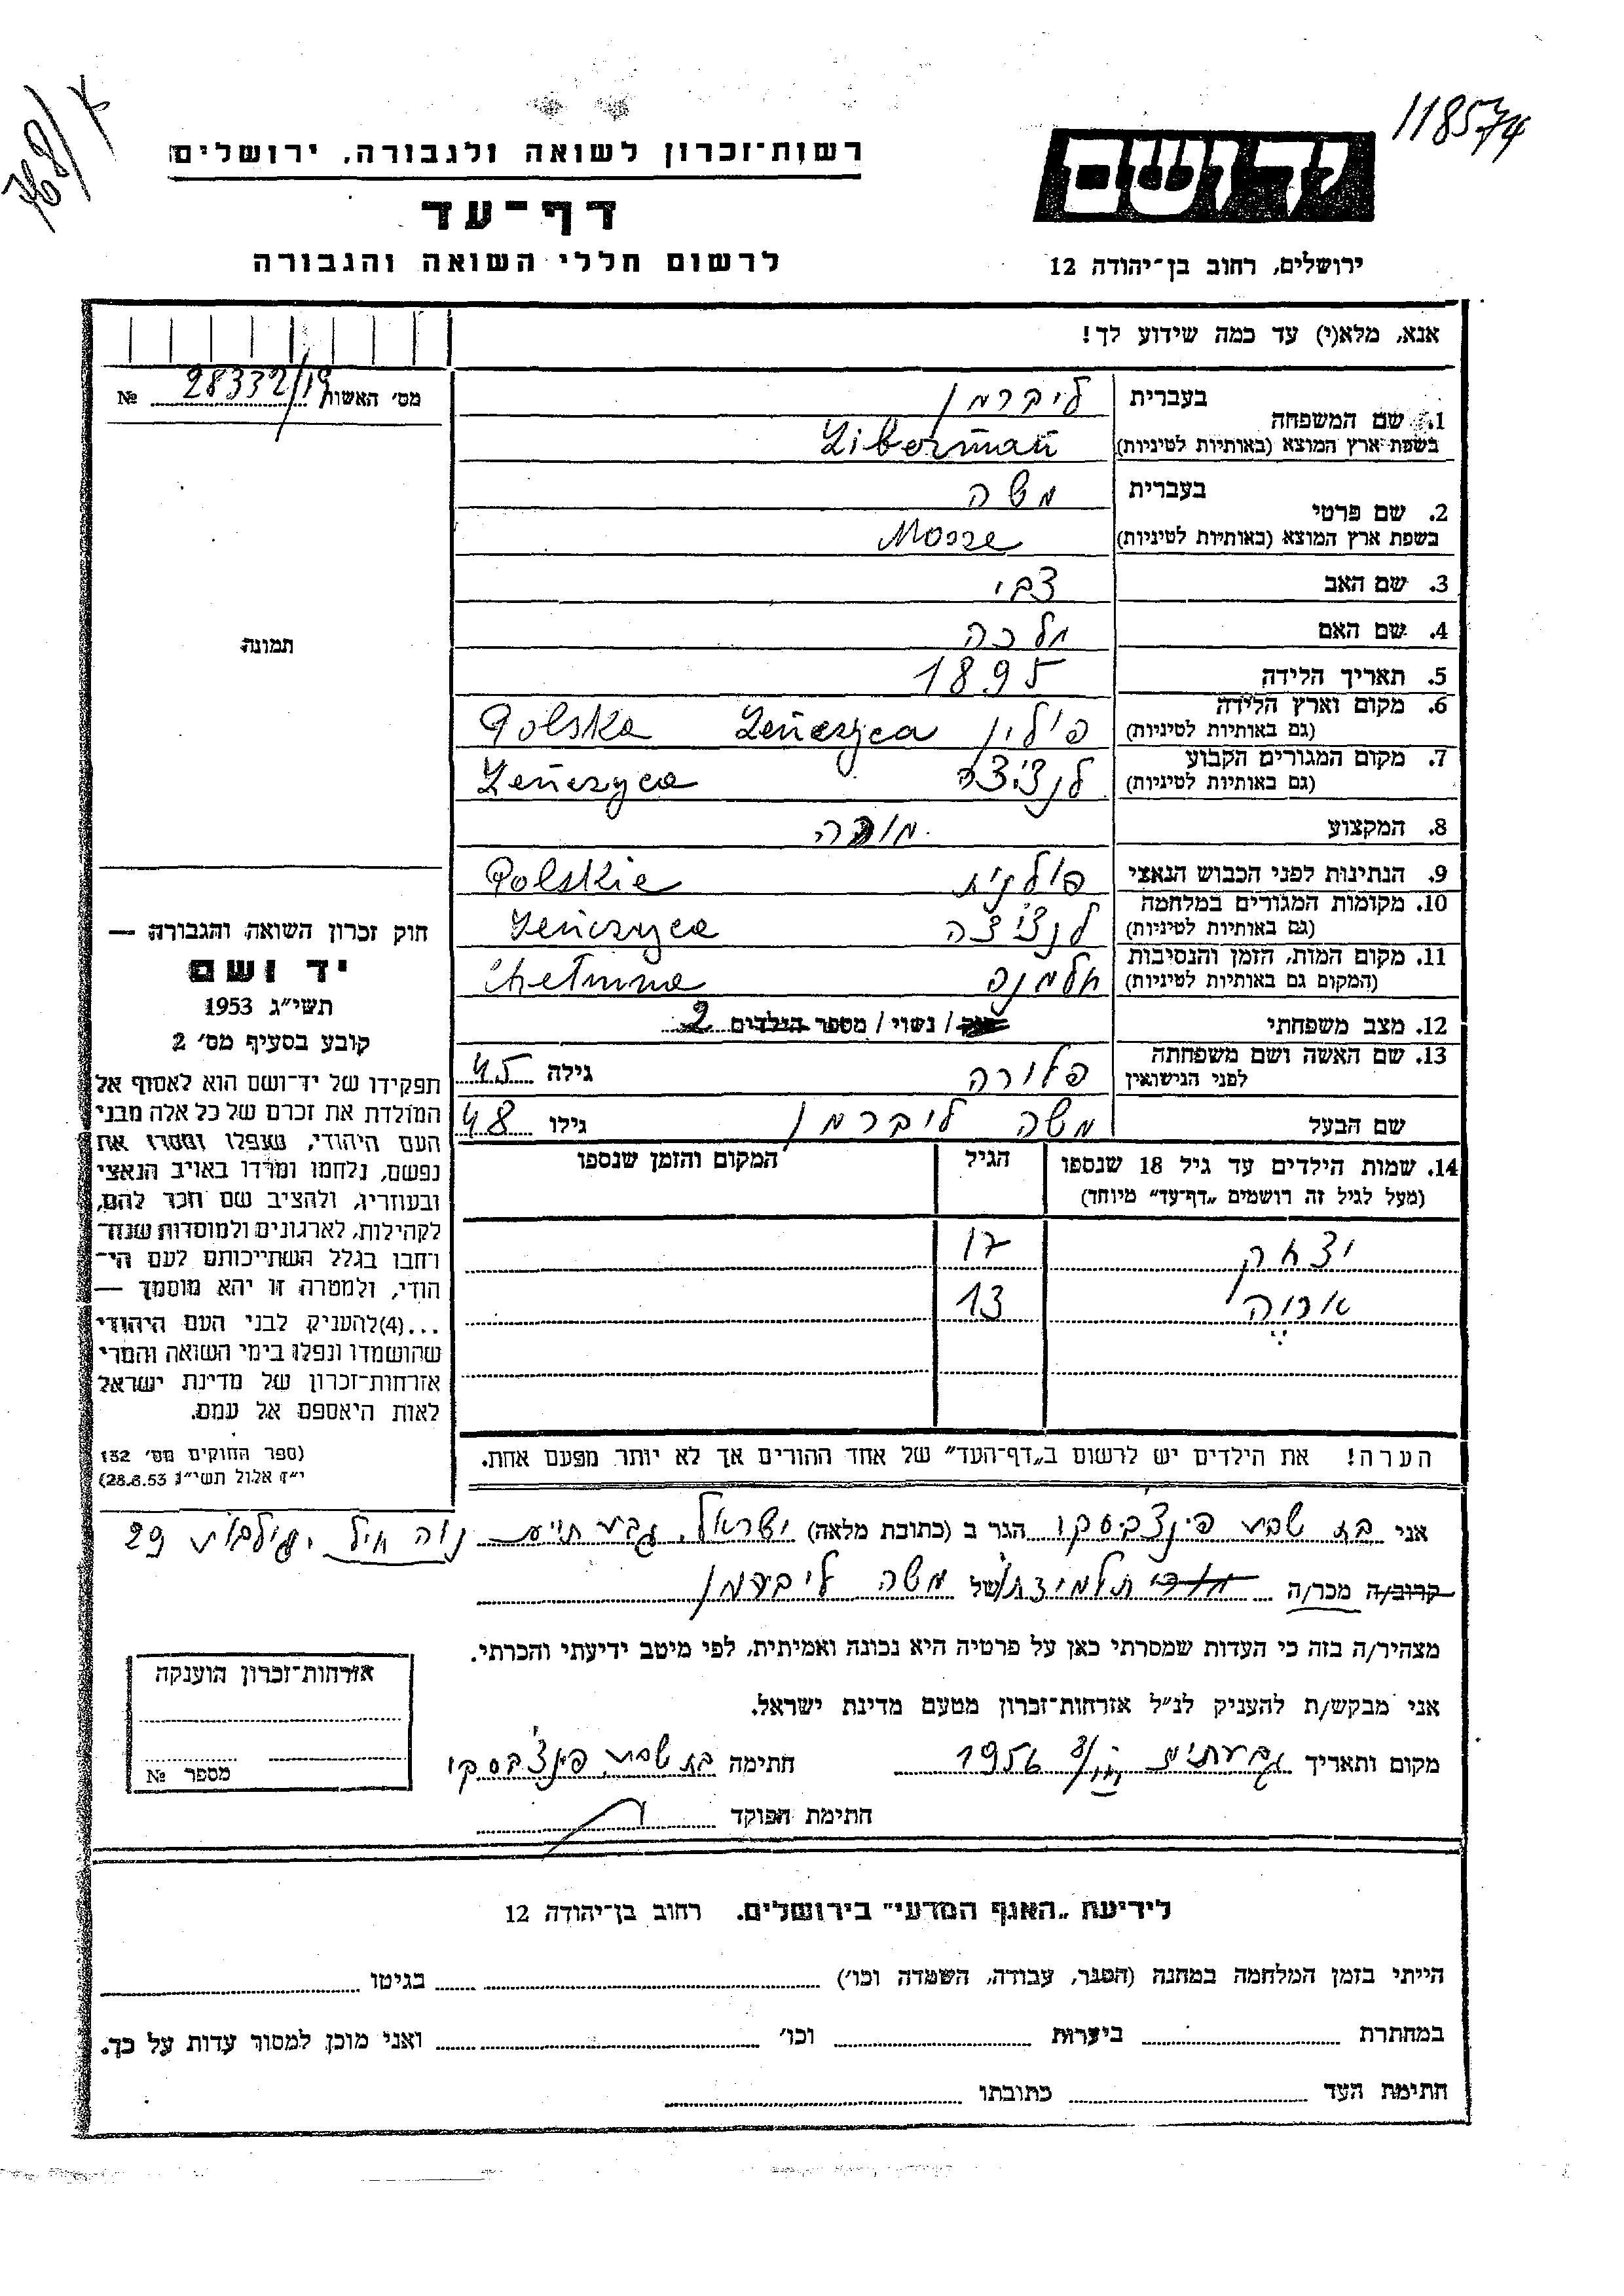 118574
768/
יד ושם
רשות־זכרון לשואה ולגבורה, ירושלים
דף־עד
לרשום חללי השואה והגבורה
ירושלים, רחוב בן־יהודה 12
אנא, מלא(י) עד כמה שידוע לך!
מס׳ האשות 28332/19 №
בעברית ליברמן
1. שם המשפחה
בשפת ארץ המוצא (באותיות לטיניות) Liberman
בעברית משה
2. שם פרטי
בשפת ארץ המוצא (באותיות לטיניות)
3. שם האב צבי
4. שם האם מלכה
5. תאריך הלידה 1895
6. מקום וארץ הלידה
(גם באותיות לטיניות) פולין Leńczyca Polska
7. מקום המגורים הקבוע
(גם באותיות לטיניות) לנצ׳יצה Leńczyca
8. המקצוע מורה
9. הנתינות לפני הכבוש הנאצי פולנית Polskie
10. מקומות המגורים במלחמה
(גם באותיות לטיניות) לנצ׳יצה Leńczyca
11. מקום המות, הזמן והנסיבות
(המקום גם באותיות לטיניות) חלמנה Chełmna
12. מצב משפחתי / נשוי / מספר הילדים 2
13. שם האשה ושם משפחתה
לפני הנישואין פלורה גילה 45
שם הבעל משה ליברמן גילו 48
14. שמות הילדים עד גיל 18 שנספו הגיל המקום והזמן שנספו
(מעל לגיל זה רושמים „דף־עד״ מיוחד)
יצחק 17
אריה 13
הערה! את הילדים יש לרשום ב„דף־העד״ של אחד ההורים אך לא יותר מפעם אחת.
תמונה
חוק זכרון השואה והגבורה —
יד ושם
תשי״ג 1953
קובע בסעיף מס׳ 2
תפקידו של יד־ושם הוא לאסוף אל
המולדת את זכרם של כל אלה מבני
העם היהודי, שנפלו ומסרו את
נפשם, נלחמו ומרדו באויב הנאצי
ובעוזריו, ולהציב שם וזכר להם,
לקהילות, לארגונים ולמוסדות שנח־
רחבו בגלל השתייכותם לעם הי־
הודי, ולמטרה זו יהא מוסמך —
...(4)להעניק לבני העם היהודי
שהושמדו ונפלו בימי השואה והמרי
אזרחות־זכרון של מדינת ישראל
לאות היאספם אל עמם.
(ספר החוקים מס׳ 132
י״ז אלול תשי״ג 28.8.53)
אני בת שבע פינצ׳בסקי הגר ב (כתובת מלאה) ישראל, גבעתיים נוה 29
קרוב/ה מכר/ה תלמידתו של משה ליברמן
מצהיר/ה בזה כי העדות שמסרתי כאן על פרטיה היא נכונה ואמיתית, לפי מיטב ידיעתי והכרתי.
אני מבקש/ת להעניק לנ״ל אזרחות־זכרון מטעם מדינת ישראל.
מקום ותאריך גבעתיים 1956 חתימה בת שבע פינצ׳בסקי
חתימת הפוקד
אזרחות־זכרון הוענקה
מספר №
לידיעת „האגף המדעי״ בירושלים. רחוב בן־יהודה 12
הייתי בזמן המלחמה במחנה (הסגר, עבודה, השמדה וכו׳) בגיטו
במחתרת ביערות וכו׳ ואני מוכן למסור עדות על כך.
חתימת העד כתובתו